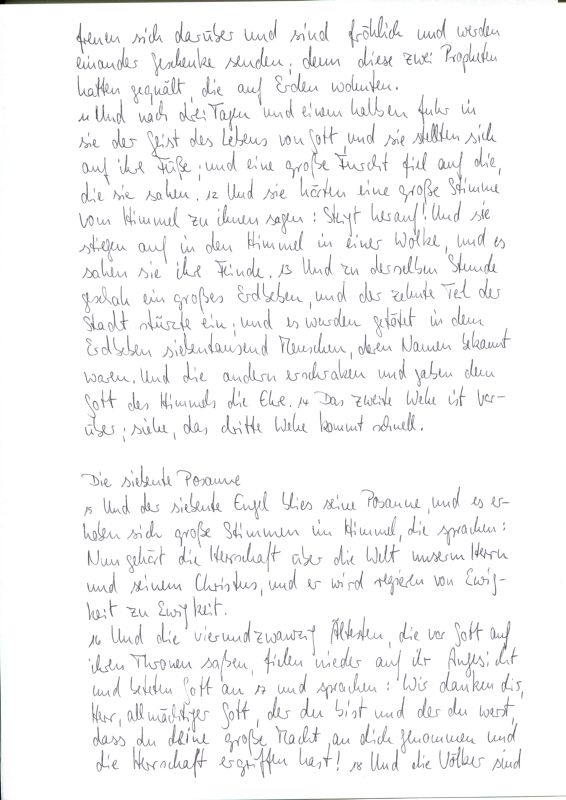 freuen sich darüber und sind fröhlich und werden
einander Geschenke senden; denn diese zwei Propheten
hatten gequält, die auf Erden wohnten.
11 Und nach drei Tagen und einem halben fuhr in
sie der Geist des Lebens von Gott, und sie stellten sich
auf ihre Füße; und eine große Furcht fiel auf die,
die sie sahen. 12 Und sie hörten eine große Stimme
vom Himmel zu ihnen sagen: Steigt herauf! Und sie
stiegen auf in den Himmel in einer Wolke, und es
sahen sie ihre Feinde. 13 Und zu derselben Stunde
geschah ein großes Erdbeben, und der zehnte Teil der
Stadt stürzte ein; und es wurden getötet in dem
Erdbeben siebentausend Menschen, deren Namen bekannt
waren. Und die andern erschraken und gaben dem
Gott des Himmels die Ehre. 14 Das zweite Wehe ist vor-
über; siehe, das dritte Wehe kommt schnell.
Die siebente Posaune
15 Und der siebente Engel blies seine Posaune, und es er-
hoben sich große Stimmen im Himmel, die sprachen:
Nun gehört die Herrschaft über die Welt unserm Herrn
und seinem Christus, und er wird regieren von Ewig-
keit zu Ewigkeit.
16 Und die vierundzwanzig Ältesten, die vor Gott auf
ihren Thronen saßen, fielen nieder auf ihr Angesicht
und beteten Gott an 17 und sprachen: Wir danken dir,
Herr, allmächtiger Gott, der du bist und der du warst,
dass du deine große Macht an dich genommen und
die Herrschaft ergriffen hast! 18 Und die Völker sind